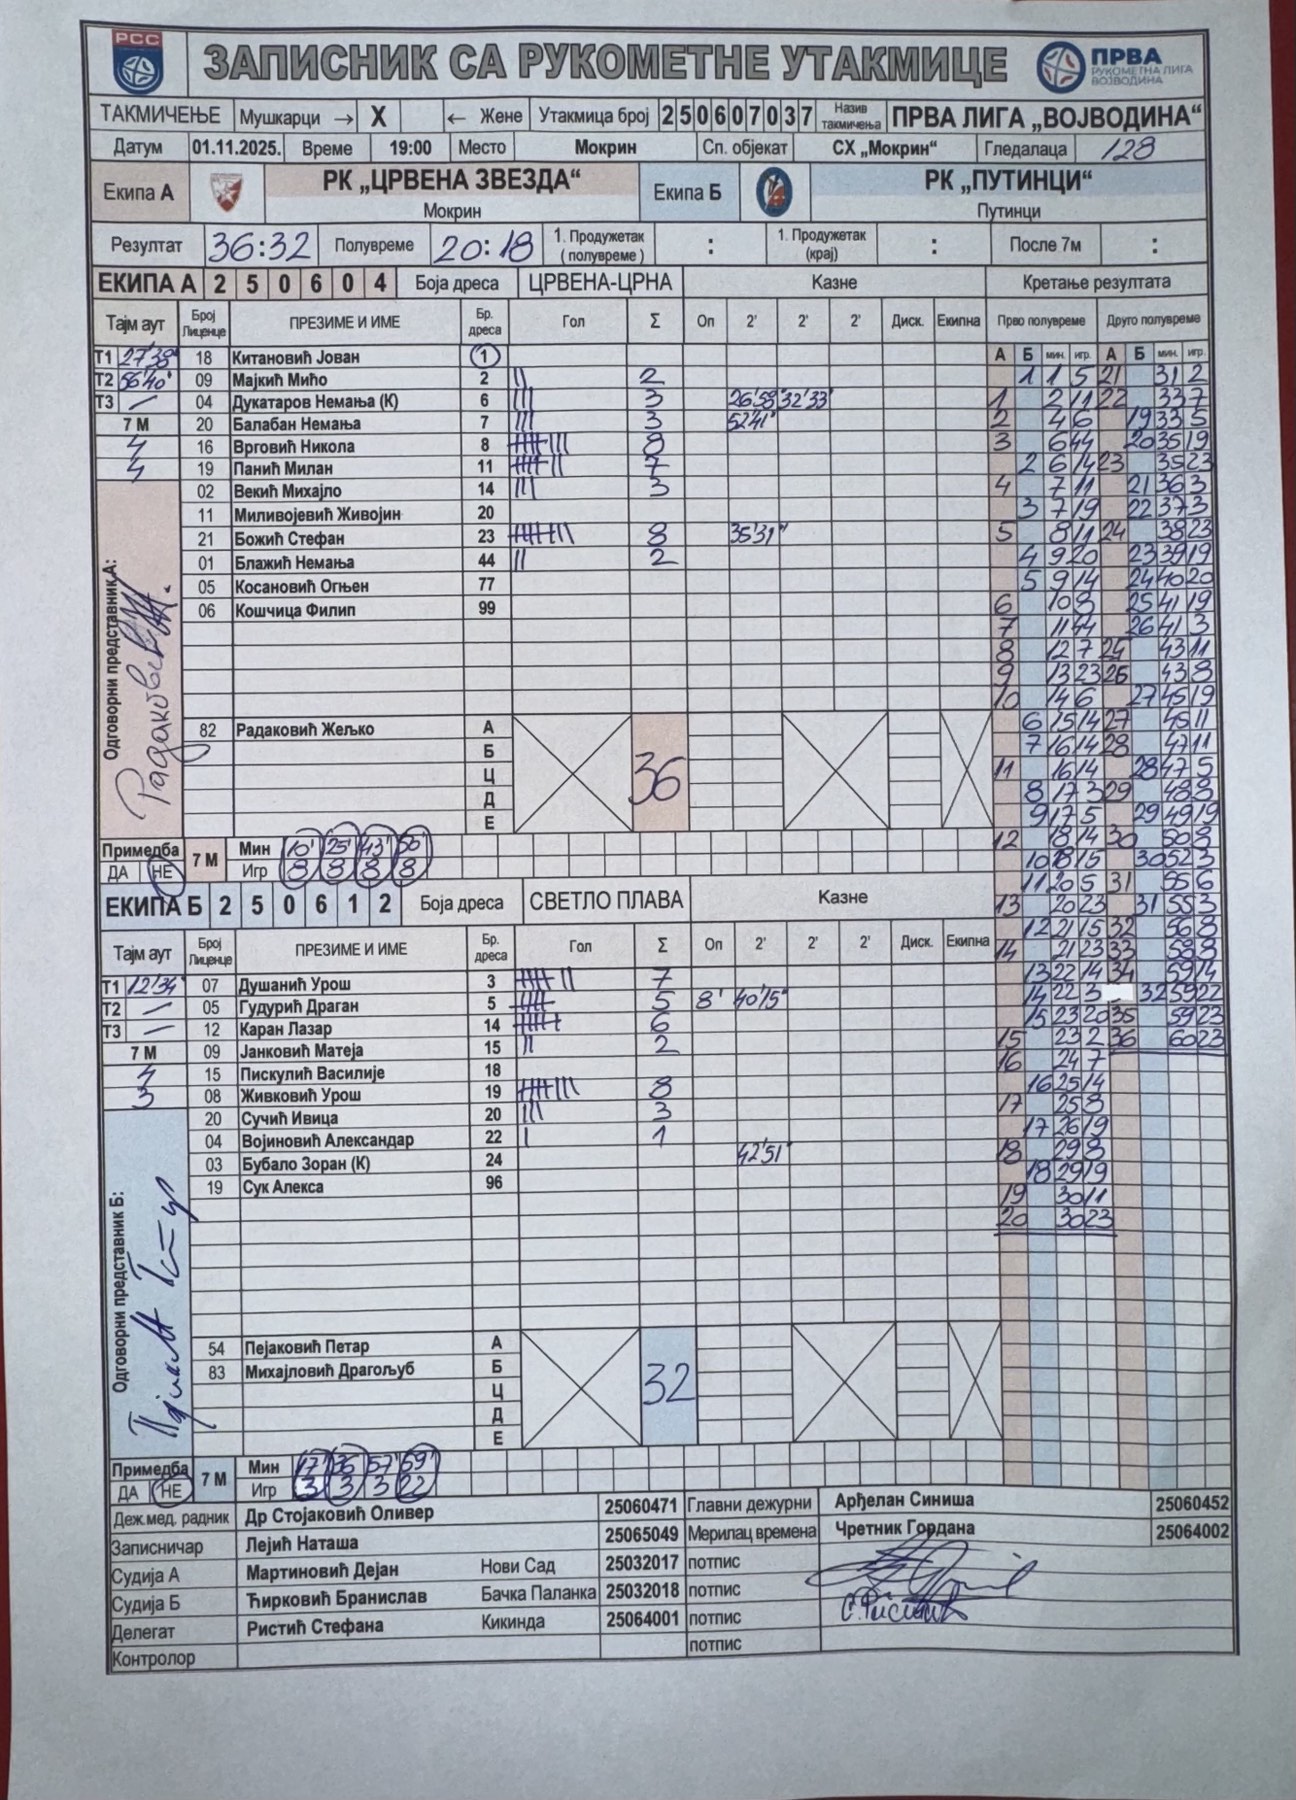 РСС
ЗАПИСНИК СА РУКОМЕТНЕ УТАКМИЦЕ
ПРВА
РУКОМЕТНА ЛИГА
ВОЈВОДИНА
ТАКМИЧЕЊЕ Мушкарци → X ← Жене Утакмица број 2 5 0 6 0 7 0 3 7 Назив такмичења ПРВА ЛИГА „ВОЈВОДИНА“
Датум 01.11.2025. Време 19:00 Место Мокрин Сп. објекат СХ „Мокрин“ Гледалаца 128
Екипа А РК „ЦРВЕНА ЗВЕЗДА“ Мокрин Екипа Б РК „ПУТИНЦИ“ Путинци
Резултат 36:32 Полувреме 20:18 1. Продужетак (полувреме) : 1. Продужетак (крај) : После 7м :
ЕКИПА А 2 5 0 6 0 4 Боја дреса ЦРВЕНА-ЦРНА Казне Кретање резултата
Тајм аут Број Лиценце ПРЕЗИМЕ И ИМЕ Бр. дреса Гол Σ Оп 2' 2' 2' Диск. Екипна Прво полувреме Друго полувреме
А Б мин. игр. А Б мин. игр.
Т1 27'38" 18 Китановић Јован 1
Т2 56'40" 09 Мајкић Мићо 2 || 2 1 1 5 21 31 2
Т3 — 04 Дукатаров Немања (К) 6 ||| 3 26'58" 32'33" 1 2 11 22 33 7
7 М 20 Балабан Немања 7 ||| 3 52'41" 2 4 6 19 33 5
4 16 Врговић Никола 8 8 3 6 44 20 35 19
4 19 Панић Милан 11 7 2 6 14 23 35 23
02 Векић Михајло 14 ||| 3 4 7 11 21 36 3
11 Миливојевић Живојин 20 3 7 19 22 37 3
21 Божић Стефан 23 8 35'31" 5 8 11 24 38 23
01 Блажић Немања 44 || 2 4 9 20 23 39 19
05 Косановић Огњен 77 5 9 14 24 40 20
06 Кошчица Филип 99 6 10 8 25 41 19
7 11 44 26 41 3
8 12 7 43 11
9 13 23 26 43 8
10 14 6 27 45 19
82 Радаковић Жељко А 6 15 14 27 45 11
Б 7 16 14 28 47 11
Ц 36 11 16 14 28 47 5
Д 8 17 3 29 48 8
Е 9 17 5 29 49 19
Одговорни представник А:
12 18 14 30 50 8
Примедба 7 М Мин 10' 25' 43' 56' 10 18 15 30 52 3
ДА НЕ Игр 8 8 8 8 11 20 5 31 55 6
ЕКИПА Б 2 5 0 6 1 2 Боја дреса СВЕТЛО ПЛАВА Казне 13 20 23 31 55 3
12 21 15 32 56 8
Тајм аут Број Лиценце ПРЕЗИМЕ И ИМЕ Бр. дреса Гол Σ Оп 2' 2' 2' Диск. Екипна 14 21 23 33 58 8
Т1 12'34" 07 Душанић Урош 3 7 13 22 14 34 59 14
Т2 — 05 Гудурић Драган 5 5 8' 40'15" 14 22 3 32 59 22
Т3 — 12 Каран Лазар 14 6 15 23 20 35 59 23
7 М 09 Јанковић Матеја 15 || 2 15 23 2 36 60 23
4 15 Пискулић Василије 18 16 24 7
3 08 Живковић Урош 19 8 16 25 14
20 Сучић Ивица 20 ||| 3 17 25 8
04 Војиновић Александар 22 | 1 17 26 19
03 Бубало Зоран (К) 24 42'51" 18 29 8
19 Сук Алекса 96 18 29 19
19 30 11
20 30 23
Одговорни представник Б:
54 Пејаковић Петар А
83 Михајловић Драгољуб Б
Ц 32
Д
Е
Примедба 7 М Мин 17' 36' 57' 59'
ДА НЕ Игр 3 3 3 22
Деж.мед. радник Др Стојаковић Оливер 25060471 Главни дежурни Арђелан Синиша 25060452
Записничар Лејић Наташа 25065049 Мерилац времена Чретник Гордана 25064002
Судија А Мартиновић Дејан Нови Сад 25032017 потпис
Судија Б Ћирковић Бранислав Бачка Паланка 25032018 потпис
Делегат Ристић Стефана Кикинда 25064001 потпис
Контролор потпис